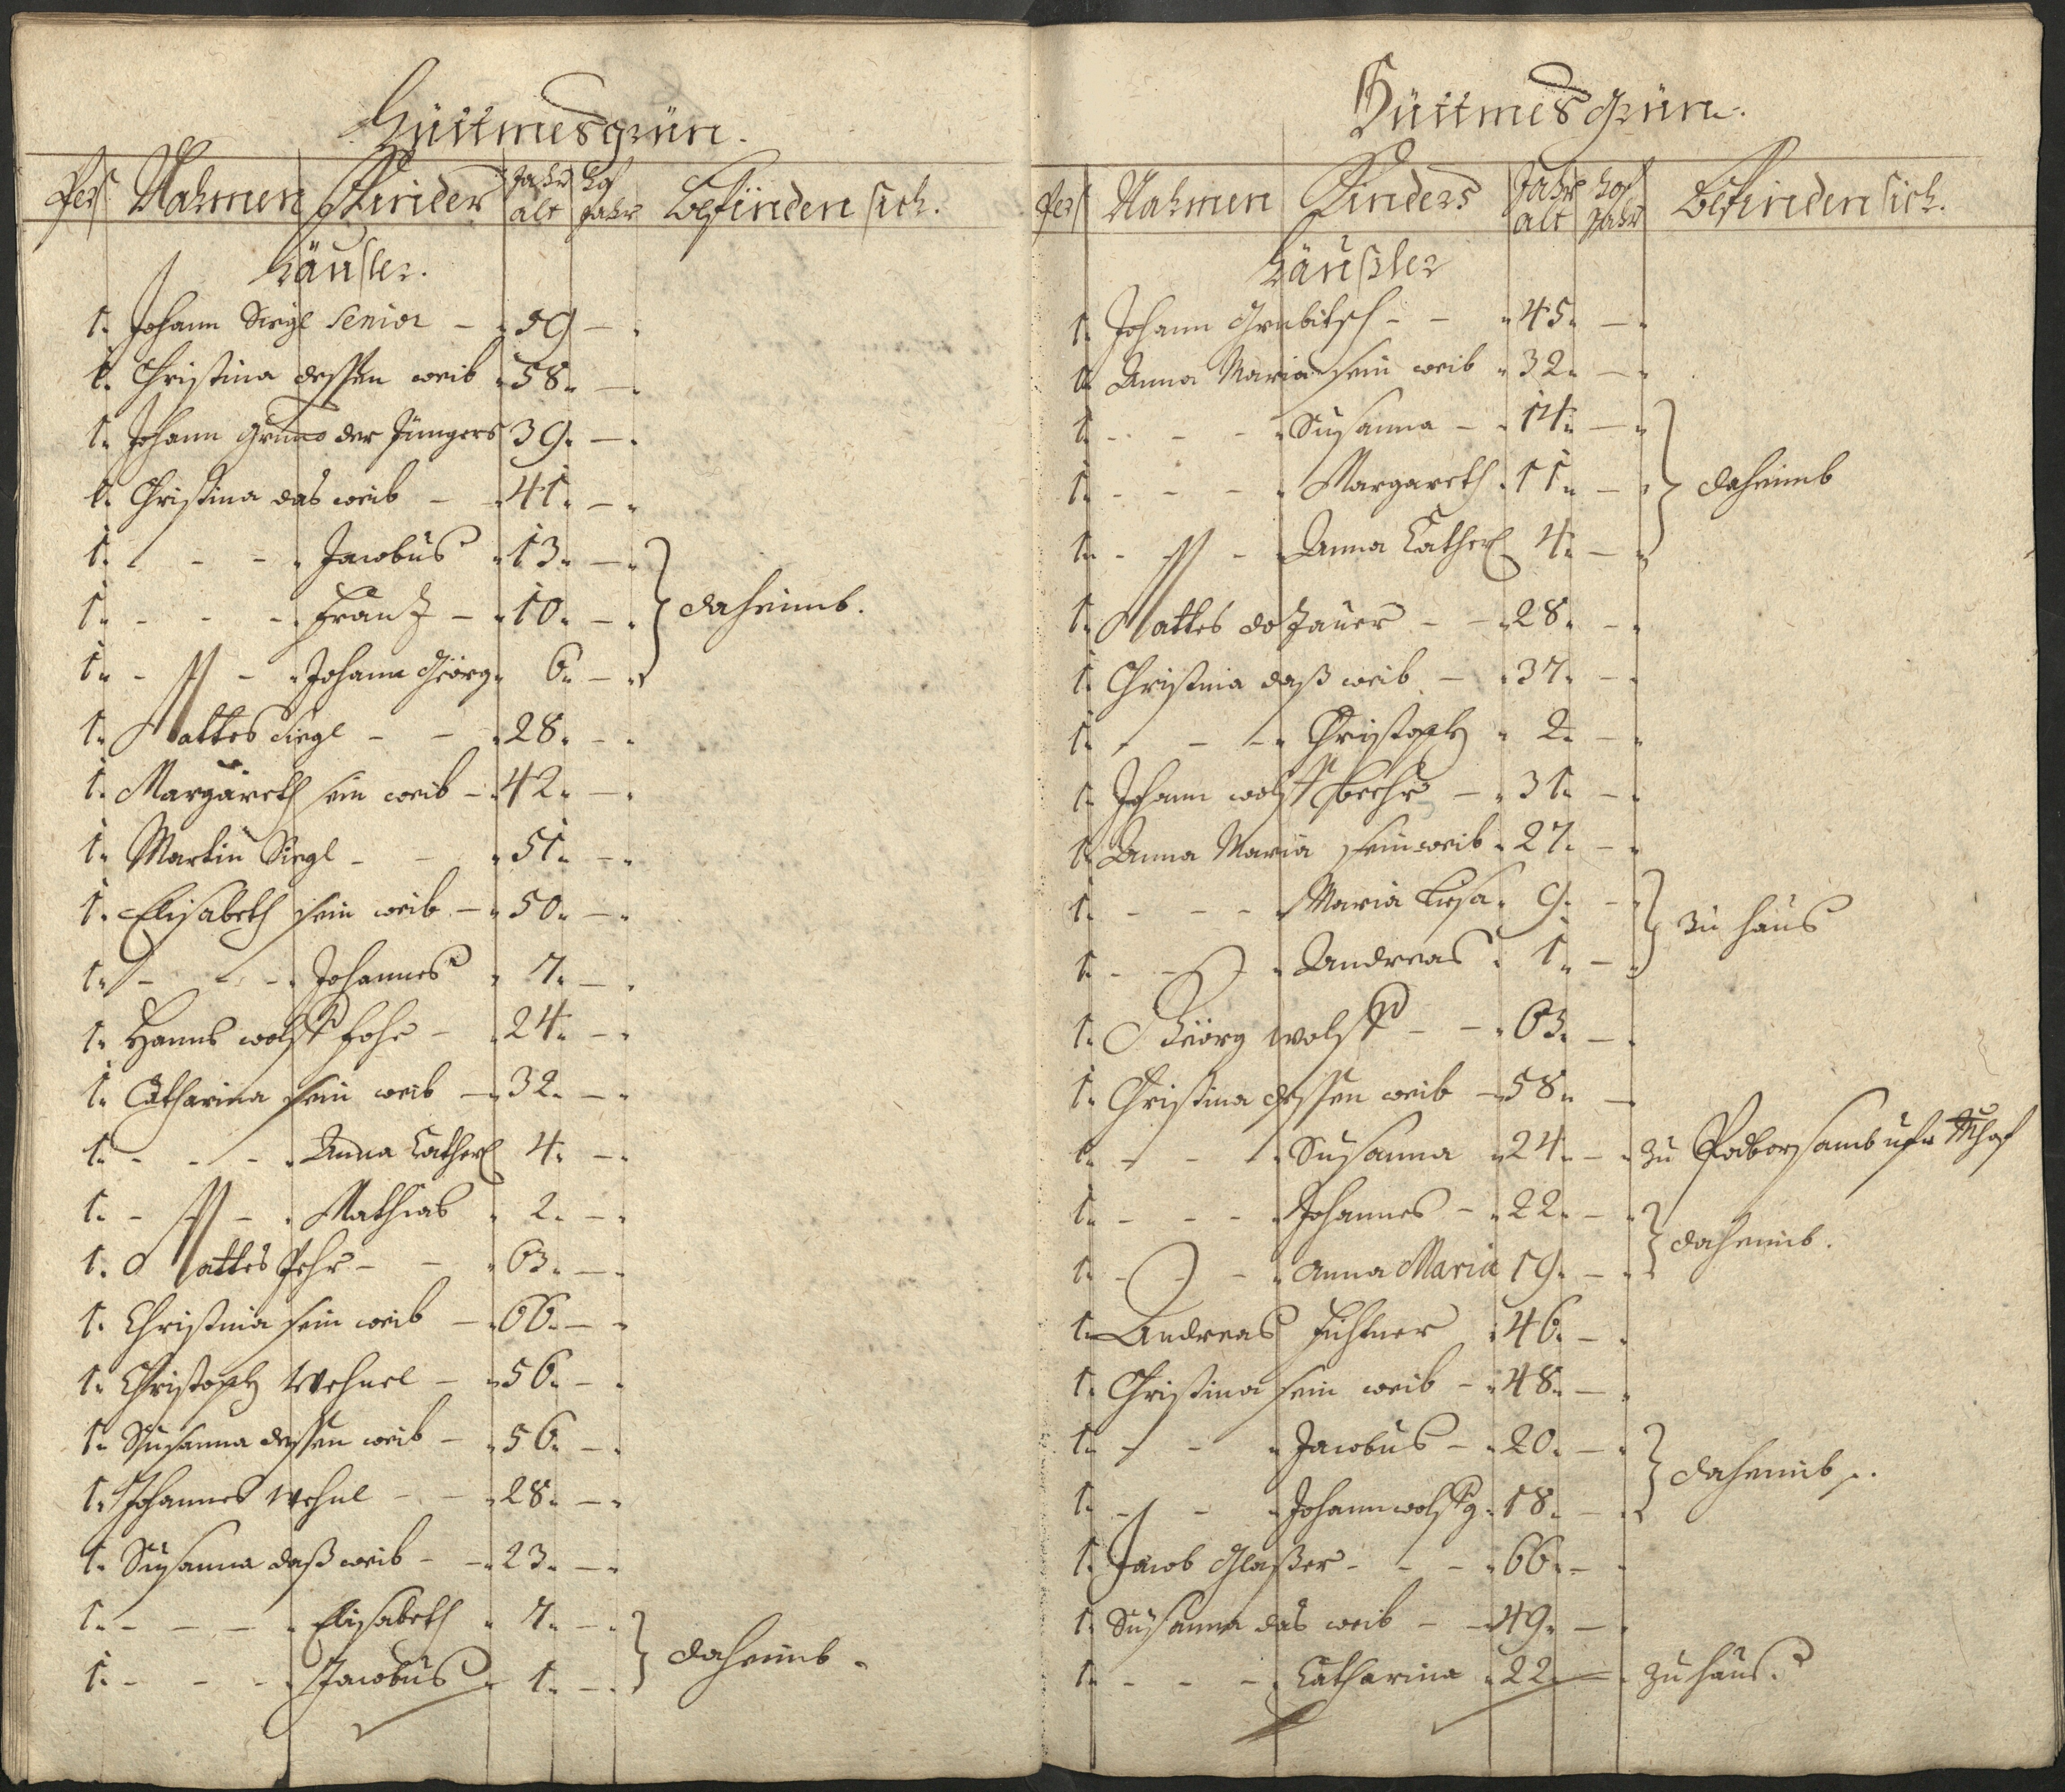 Hüttmesgrün.
Pers. Nahmen Kinder Jahr alt Hof Jahr befinden sich.
Häusler.
1. Johann Siegl Senior - 59 -
1. Christina dessen weib 58. -
1. Johann der Jüngers 39. -
1. Christina das weib - 41. -
1. - - - Jacobus 13. -
1. - - - Frantz - 10. - daheimb.
1. - - - Johann Geörg 6. -
1. Mattes Siegl - - 28. -
1. Margareth sein weib - 42. -
1. Martin Siegl - - 51. -
1. Elisabeth sein weib - 50. -
1. - - - Johannes 7. -
1. Hannß wolff - 24. -
1. Catharina sein weib - 32. -
1. - - - Anna Catherl 4. -
1. - - - Mathias 2. -
1. Mattes - - 63. -
1. Christina sein weib - 66. -
1. Christoph Wehnel - 56. -
1. Susanna dessen weib - 56. -
1. Johannes Wehnl - - 28. -
1. Susanna daß weib - - 23. -
1. - - - Elisabeth 7. -
1. - - - Jacobus 1. - daheimb.
Hüttmesgrün.
Pers Nahmen Kinders Jahr alt Hof Jahr befinden sich.
Häußler
1. Johann Grubitsch - - 45. -
1. Anna Maria sein weib 32. -
1. - - - Susanna - 14. -
1. - - - Margareth 11. - daheimb
1. - - - Anna Catherl 4. -
1. Mattes doZauer - - 28. -
1. Christina daß weib - 37. -
1. - - - Christoph 2. -
1. Johann wolff - 31. -
1. Anna Maria sein weib 27. -
1. - - - Maria Liesa 9. -
1. - - - Andreas 1. - zu haus
1. Geörg wolff - - 63. -
1. Christina dessen weib - 58. -
1. - - - Susanna 24. - zu
1. - - - Johannes - 22. -
1. - - - Anna Maria 19. - daheimb.
1. Andreas Fichtner 46. -
1. Christina sein weib - 48. -
1. - - - Jacobus - 20. -
1. - - - Johann wolffg 18. - daheimb.
1. Jacob Glaßer - - - 66. -
1. Susanna das weib - - 49. -
1. - - - Catharina 22. - zu haus.